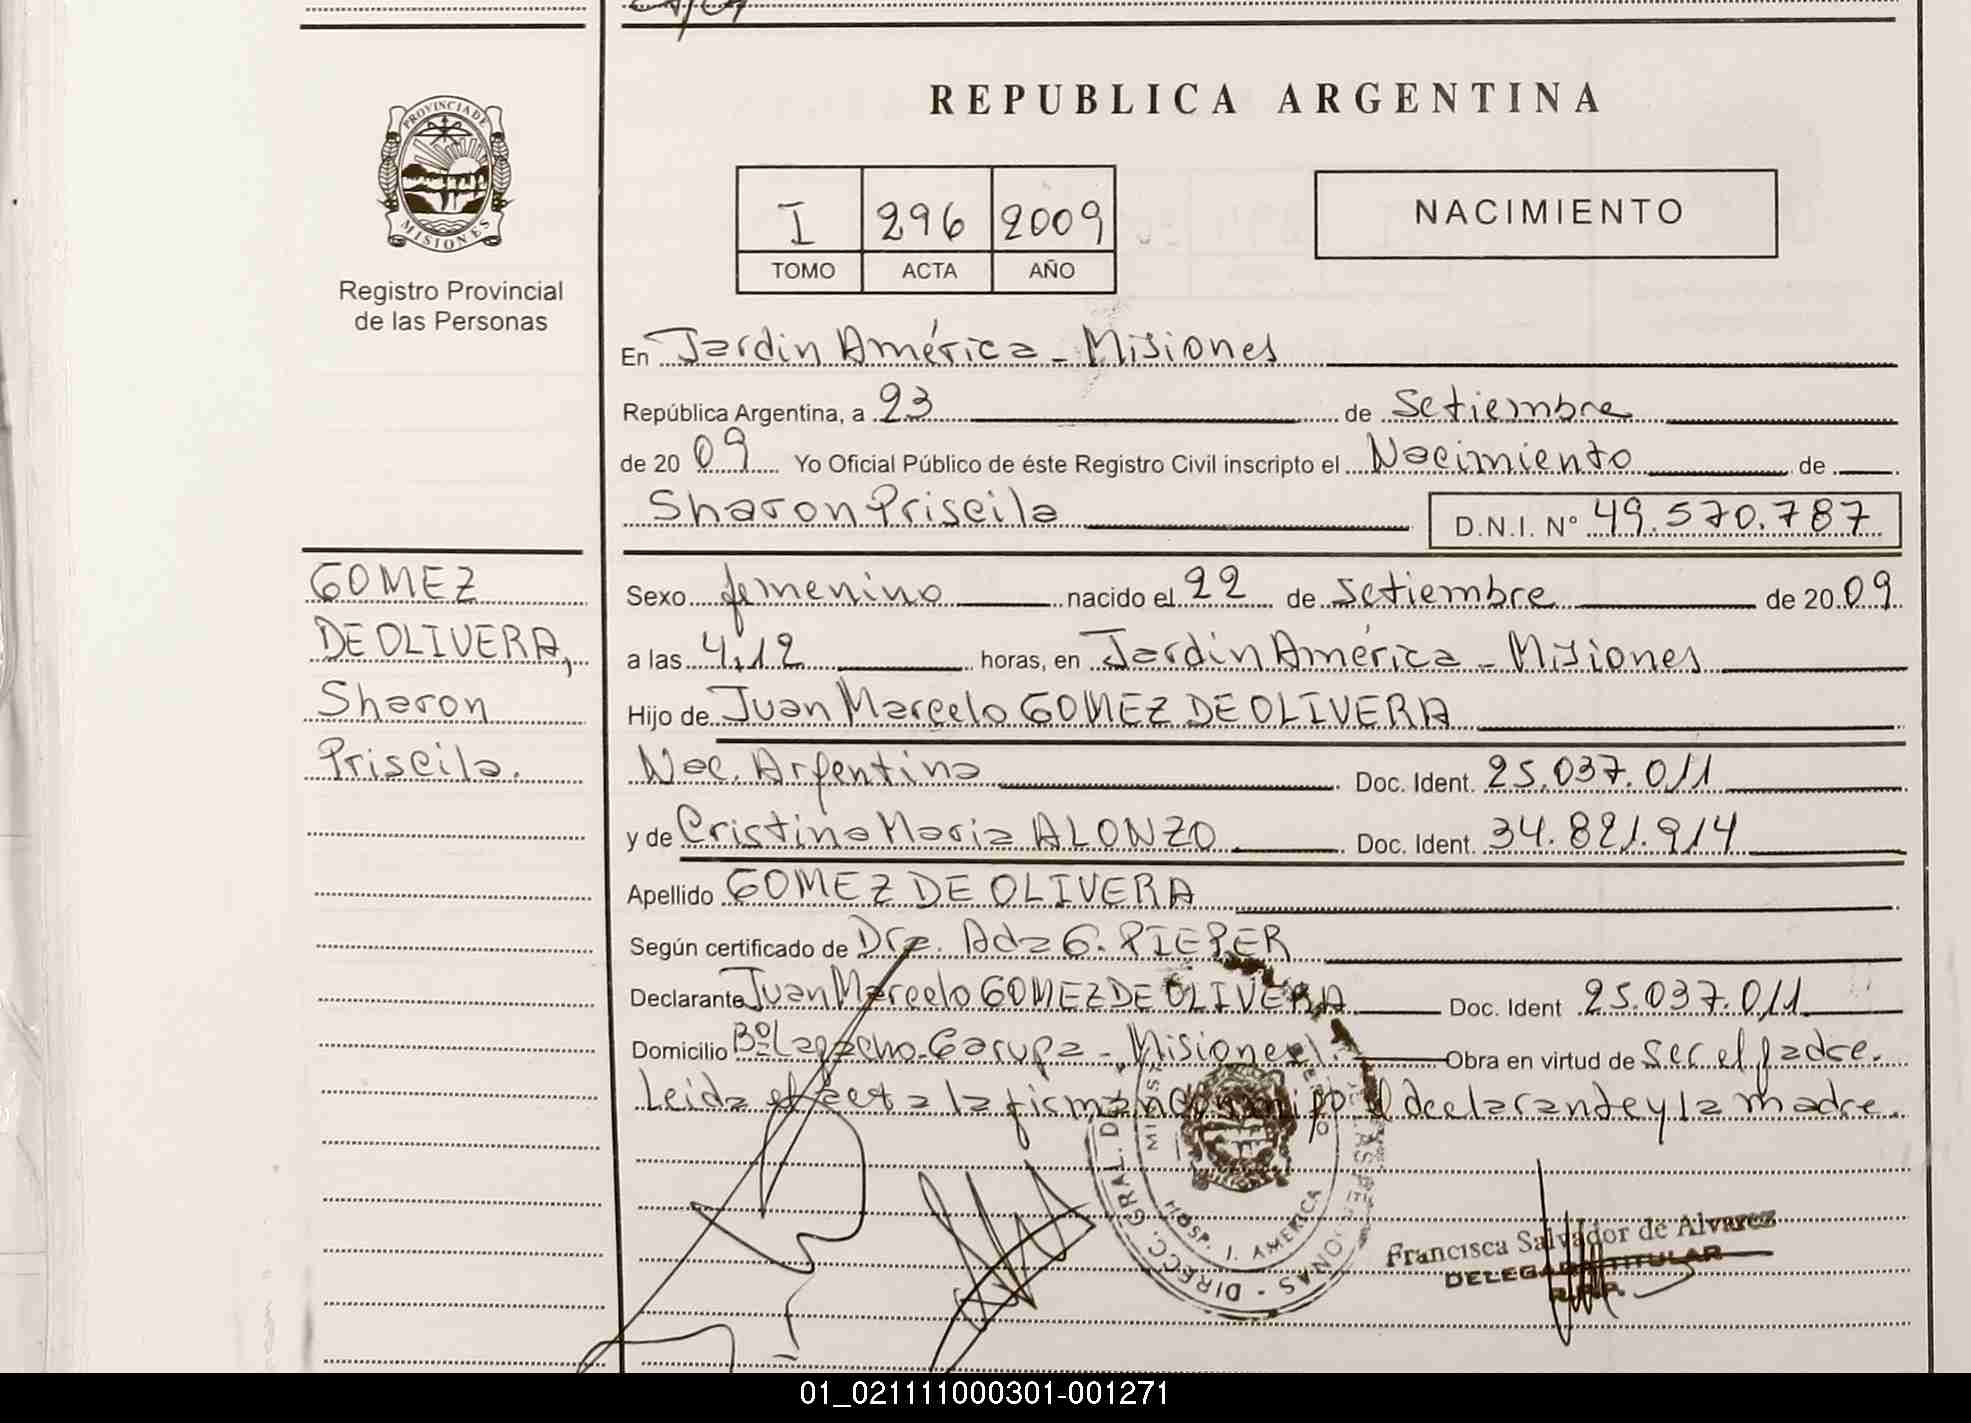 PROVINCIA DE
MISIONES
Registro Provincial
de las Personas
GOMEZ
DE OLIVERA,
Sharon
Priscila.
REPUBLICA ARGENTINA
I 296 2009
TOMO ACTA AÑO
NACIMIENTO
En Jardin América - Misiones
República Argentina, a 23 de Setiembre
de 20 09 Yo Oficial Público de éste Registro Civil inscripto el Nacimiento de
Sharon Priscila D.N.I. Nº 49.570.787
Sexo femenino nacido el 22 de setiembre de 20 09
a las 4,12 horas, en Jardin América - Misiones
Hijo de Juan Marcelo GOMEZ DE OLIVERA
Nac. Argentina Doc. Ident. 25.037.011
y de Cristina Maria ALONZO Doc. Ident. 34.821.914
Apellido GOMEZ DE OLIVERA
Según certificado de Dra. Ada G. PIEPER
Declarante Juan Marcelo GOMEZ DE OLIVERA Doc. Ident 25.037.011
Domicilio Bº Garupa - Misiones. Obra en virtud de ser el padre.
Leida el acta la firman conmigo el declarante y la madre.
HOSP. J. AMERICA
Francisca Salvador de Alvarez
DELEGADA TITULAR
R.P.P.
01_021111000301-001271